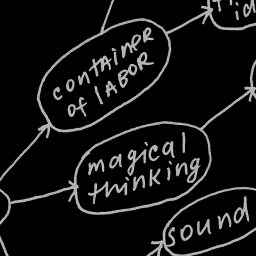 id
container
of LABOR
magical
thinking
sound